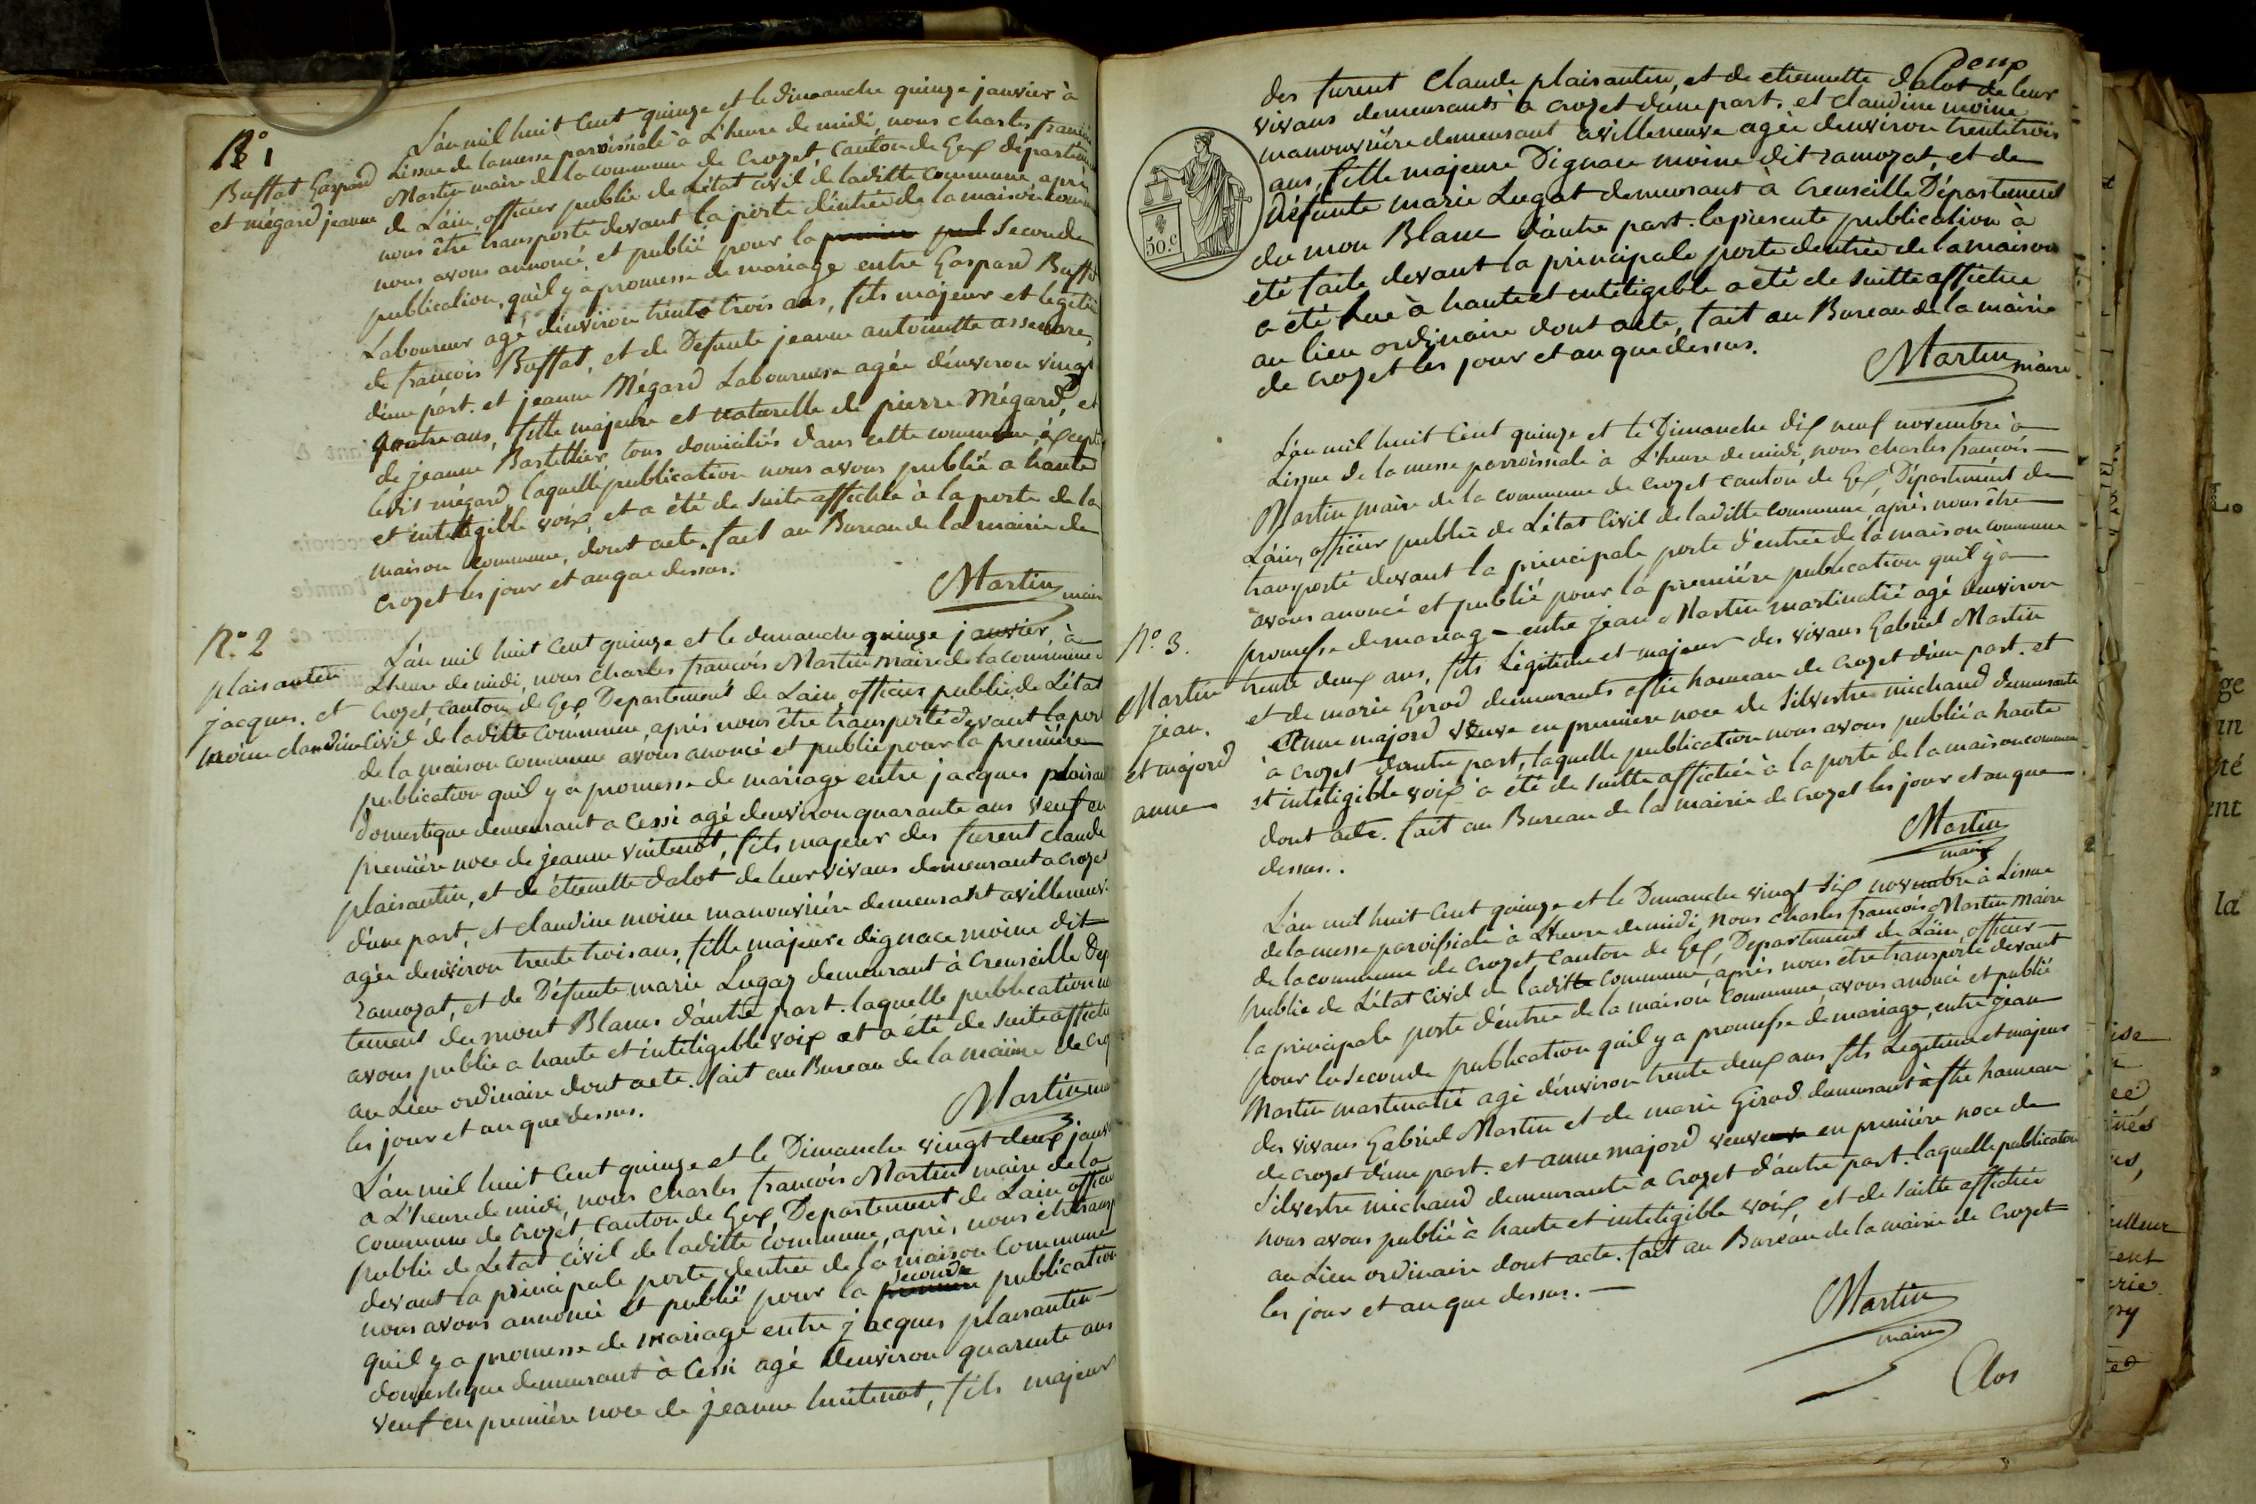 N.º 1
Buffat Gaspard
et mégard jeanne
L'an mil huit Cent quinze et le dimanche quinze janvier à
Lissue de la messe paroissiale à L'heure de midi, nous charles françois
Martin maire de la commune de Crozet, Canton de Gex départem
de L'ain, officier public de L'état civil de laditte commune après
nous être transporté devant la porte d'entrée de la maison comm
nous avons annoncé et publié pour la seconde
publication, qu'il y a promesse de mariage entre Gaspard Buffat
Laboureur agé d'environ trente trois ans, fils majeur et légitime
de françois Buffat, et de Défunte jeanne antoinette
d'une part. et jeanne Mégard Laboureuse agée d'environ vingt
quatre ans, fille majeure et naturelle de pierre Mégard, et
de jeanne Bastellier, tous domiciliés dans cette commune, éxcepté
ledit mégard, laquelle publication nous avons publié a haute
et inteligible voix, et a été de suite affichée à la porte de la
maison commune, dont acte. fait au Bureau de la mairie de
Crozet les jour et an que dessus.
Martin maire
N.º 2
plaisantin
jacques. et
moine claudine
L'an mil huit Cent quinze et le dimanche quinze janvier, à
L'heure de midi, nous Charles françois Martin maire de la commune
Crozet, canton de Gex Departement de Lain, officier public de L'état
Civil de laditte Commune, après nous être transporté devant la por
de la maison commune avons anoncé et publié pour la première
publication qu'il y a promesse de mariage entre jacques plaisan
domestique demeurant a Cessi agé d'environ quarante ans veuf en
première noce de jeanne vuitenot, fils majeur des furent claude
plaisantin, et de étienette dalot de leur vivans demeurant a crozet
d'une part, et claudine moine manouvrière demeurant a villeneuve
agée d'environ trente trois ans, fille majeure d'ignace moine dit
ramozat, et de Défunte marie Lugaz demeurant à Creuseille Dep
tement du mont Blanc d'autre part. laquelle publication n
avons publié a haute et inteligible voix et a été de suite affichée
au Lieu ordinaire dont acte. fait au Bureau de la mairie de Croz
les jour et an que dessus.
Martin ma
L'an mil huit Cent quinze et le Dimanche vingt deux janv
a L'heure de midi, nous Charles françois Martin maire de la
Commune de Crozet, Canton de Gex, Departement de Lain officier
public de Letat civil de laditte commune, après nous être transp
devant la principale porte dentrée de la maison Commune
seconde
nous avons annoncé et publié pour la premiere publication
quil y a promesse de mariage entre jacques plaisantin
domestique demeurant à Cessi agé d'environ quarente ans
veuf en première noce de jeanne huitenot, fils majeur
Deux
des furent Claude plaisantin, et de etiennette dalot de leur
vivans demeurants à crozet d'une part. et claudine moine
manouvrière demeurant a villeneuve agée d'environ trente trois
ans, fille majeure Dignace moine dit ramozat, et de
défunte marie Lugat demeurant à Creuseille Département
du mon Blanc d'autre part. la presente publication à
été faite devant la principale porte dentrée de la maison
a été lue à haute et inteligible a été de suitte affichée
au lieu ordinaire dont acte, fait au Bureau de la mairie
de crozet les jour et an que dessus.
50.c
Martin maire
L'an mil huit Cent quinze et le Dimanche dix neuf novembre à
Lissue de la messe parroissiale à L'heure de midi, nous charles françois
Martin maire de la commune de crozet canton de Gex, Département de
Lain, officier public de L'état Civil de laditte commune, après nous être
transporté devant la principale porte d'entrée de la maison commune
avons anoncé et publié pour la première publication quil y a
promesse de mariage entre jean Martin martinatié agé d'environ
trente deux ans, fils légitime et majeur des vivans Gabriel Martin
et de marie Gerod demeurants hameau de crozet d'une part. et
Anne majord veuve en première noce de Silvestre michaud demeurante
à Crozet dautre part, laquelle publication nous avons publié a haute
et inteligible voix a été de suitte affichée à la porte de la maison commune
dont acte. fait au Bureau de la mairie de Crozet les jour et an que
dessus..
N.º 3.
Martin
jean.
et majord
anne
Martin
maire
L'an mil huit Cent quinze et le Dimanche vingt six novembre à Lissue
de la messe paroissiale à L'heure de midi, nous charles françois Martin maire
de la commune de Crozet canton de Gex, Departement de Lain, officier
public de L'état civil de laditte commune, après nous être transporté devant
la principale porte d'entrée de la maison commune, avons anoncé et publié
pour la seconde publication quil y a promesse de mariage, entre jean
Martin martinatié agé d'environ trente deux ans fils Legitime et majeur
des vivans Gabriel Martin et de marie Girod demeurant hameau
de crozet d'une part. et anne majord veuve en première noce de
Silvestre michaud demeurante à Crozet d'autre part. laquelle publication
nous avons publié à haute et inteligible voix, et de suitte affichée
au Lieu ordinaire dont acte. fait au Bureau de la mairie de Crozet
les jour et an que dessus.
Martin
maire
Clos